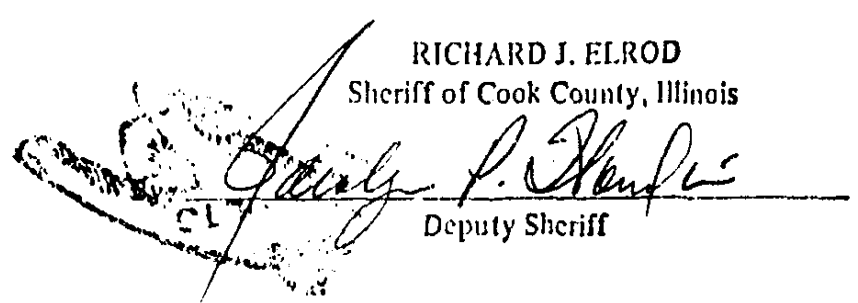 RICHARD J. ELROD
Sheriff of Cook County, Illinois
P.
Deputy Sheriff